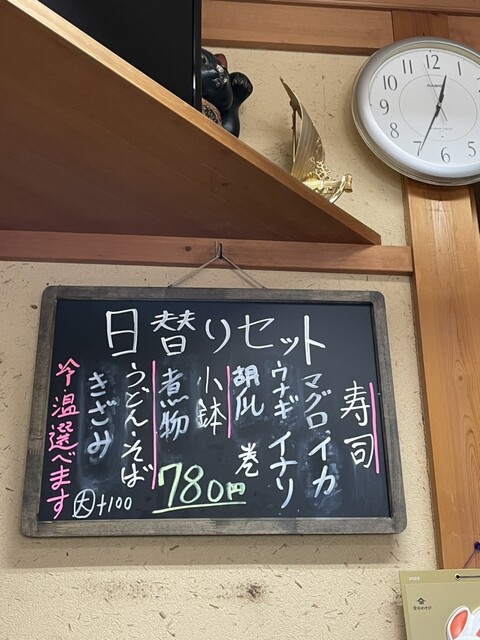 日替りセット
寿司
マグロ・イカ
ウナギ イナリ
胡瓜 巻
小鉢
煮物
うどん・そば
きざみ
冷温選べます
780円
大 +100
12
1
5
6
7
8
9
10
11